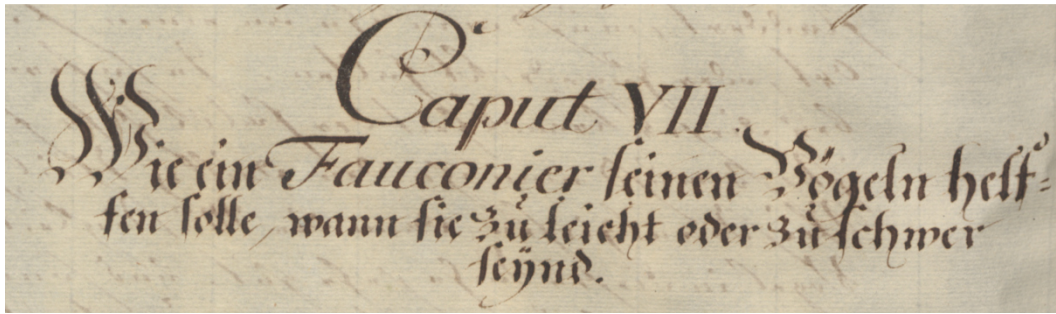 Caput VII.
Wie ein Fauconier seinen Vögeln helf=
fen solle, wann sie zu leicht oder zu schwer
seÿnd.